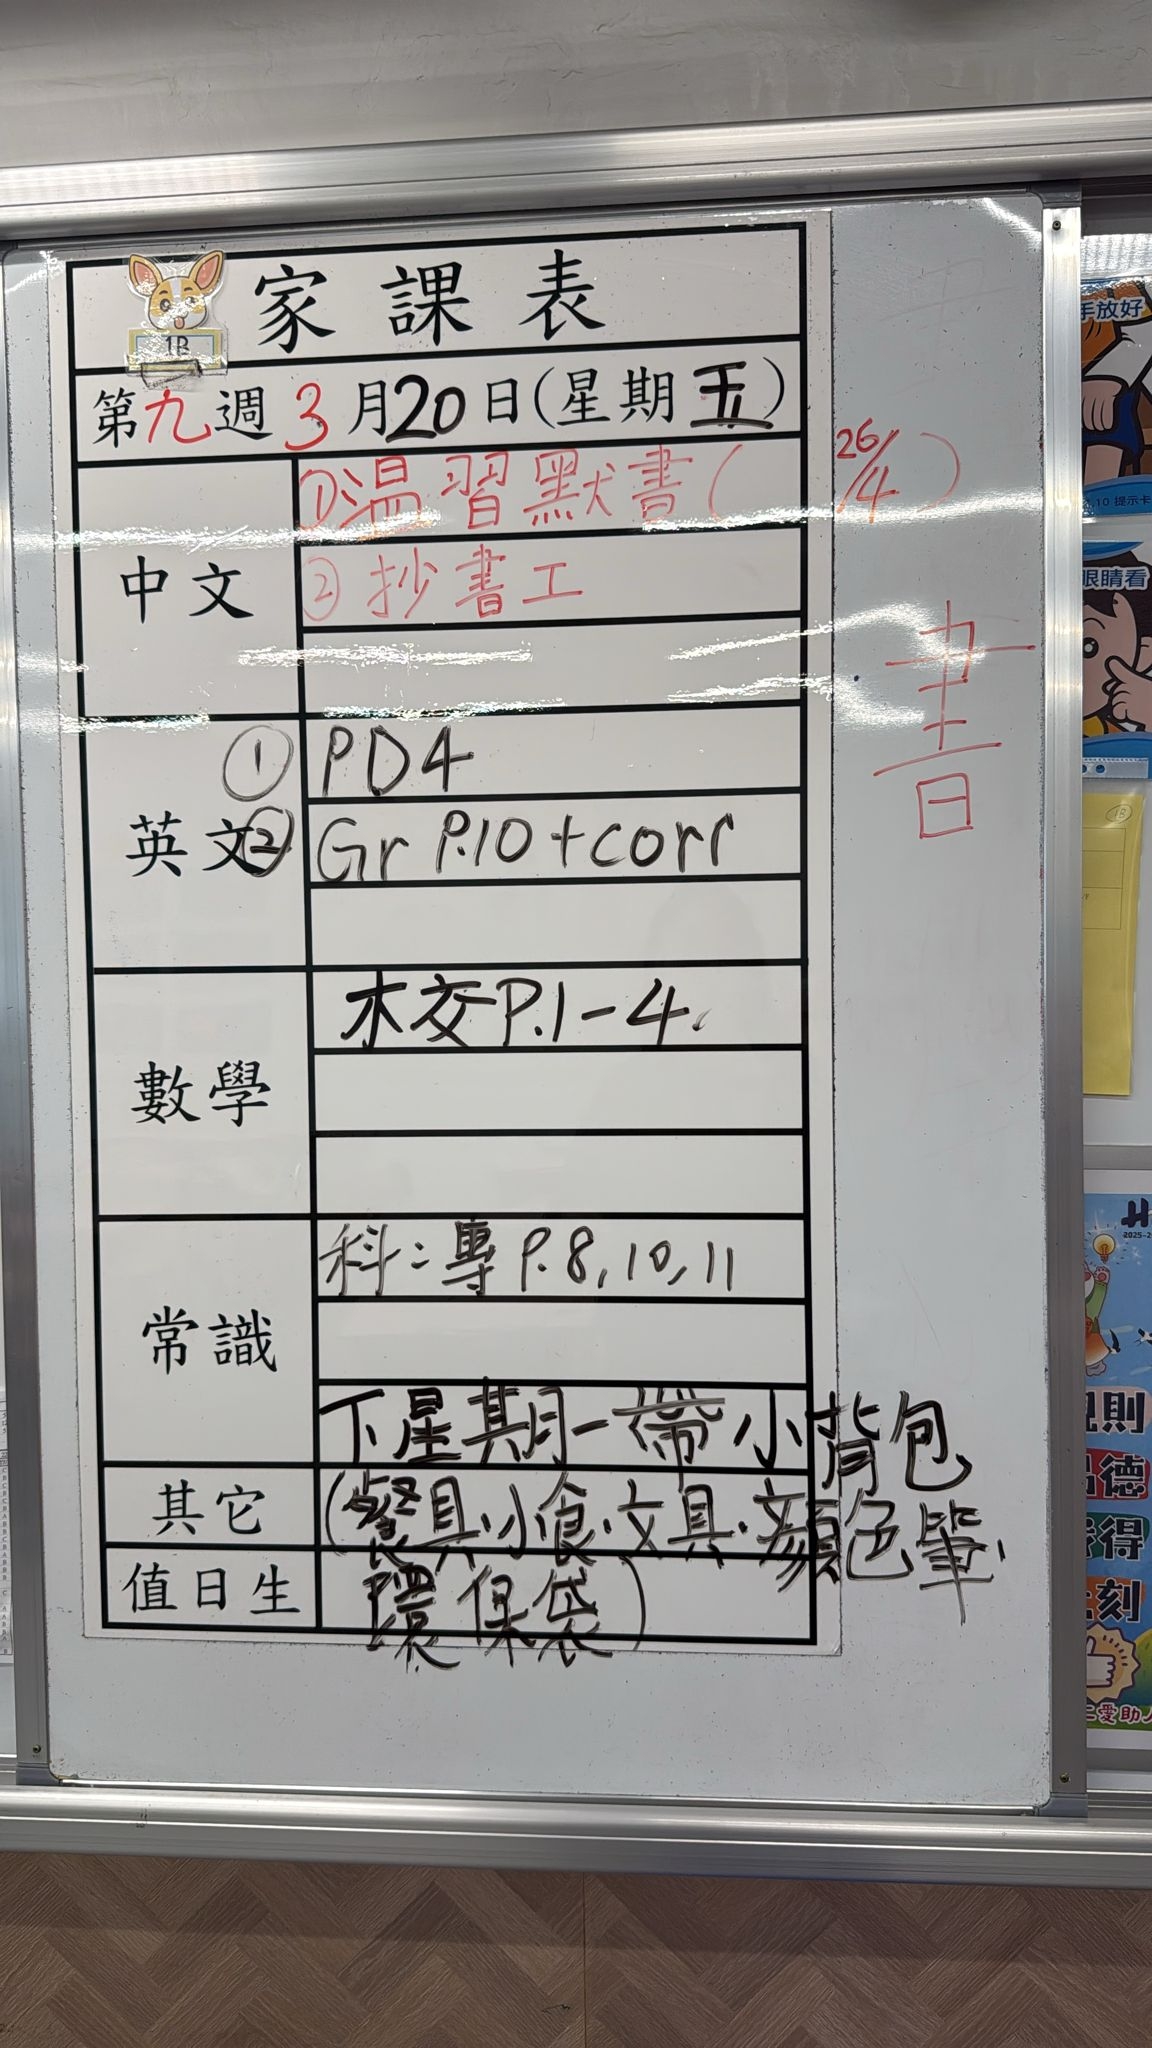 家課表
1B
第九週 3月20日(星期五)
中文
①温習默書( 26/4 )
②抄書工
書
英文
① PD4
② Gr P.10 + corr
數學
校 P.1-4.
常識
科:專 P.8,10,11
下星期一帶小背包
其它
(餐具.小食.文具.顏色筆.
值日生
環保袋)
手放好
10 提示卡
眼睛看
1B
H
2025-2
規則
品德
得
刻
仁愛助人